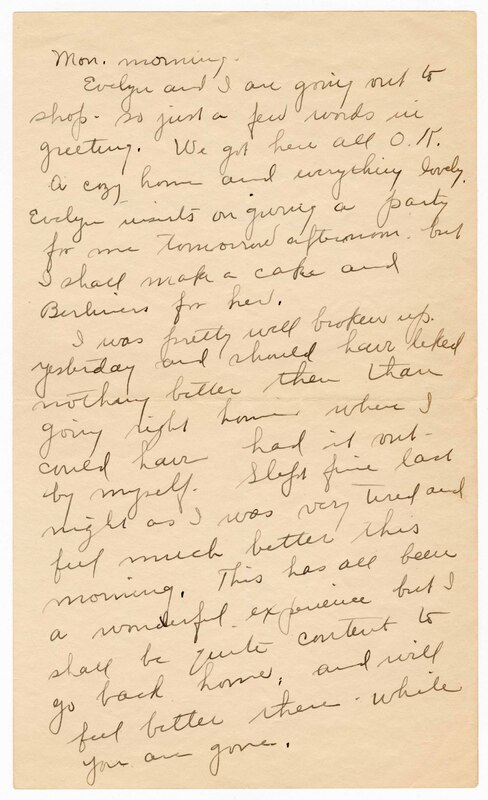 Mon. morning.
Evelyn and I are going out to
shop - so just a few words in
greeting. We got here all O.K.
A cozy home and everything lovely.
Evelyn insists on giving a party
for me tomorrow afternoon but
I shall make a cake and
Berliners for her.
I was pretty well broken up
yesterday and should have liked
nothing better then than
going right home where I
could have had it out -
by myself. Slept fine last
night as I was very tired and
feel much better this
morning. This has all been
a wonderful experience but I
shall be quite content to
go back home, and will
feel better there - while
you are gone.